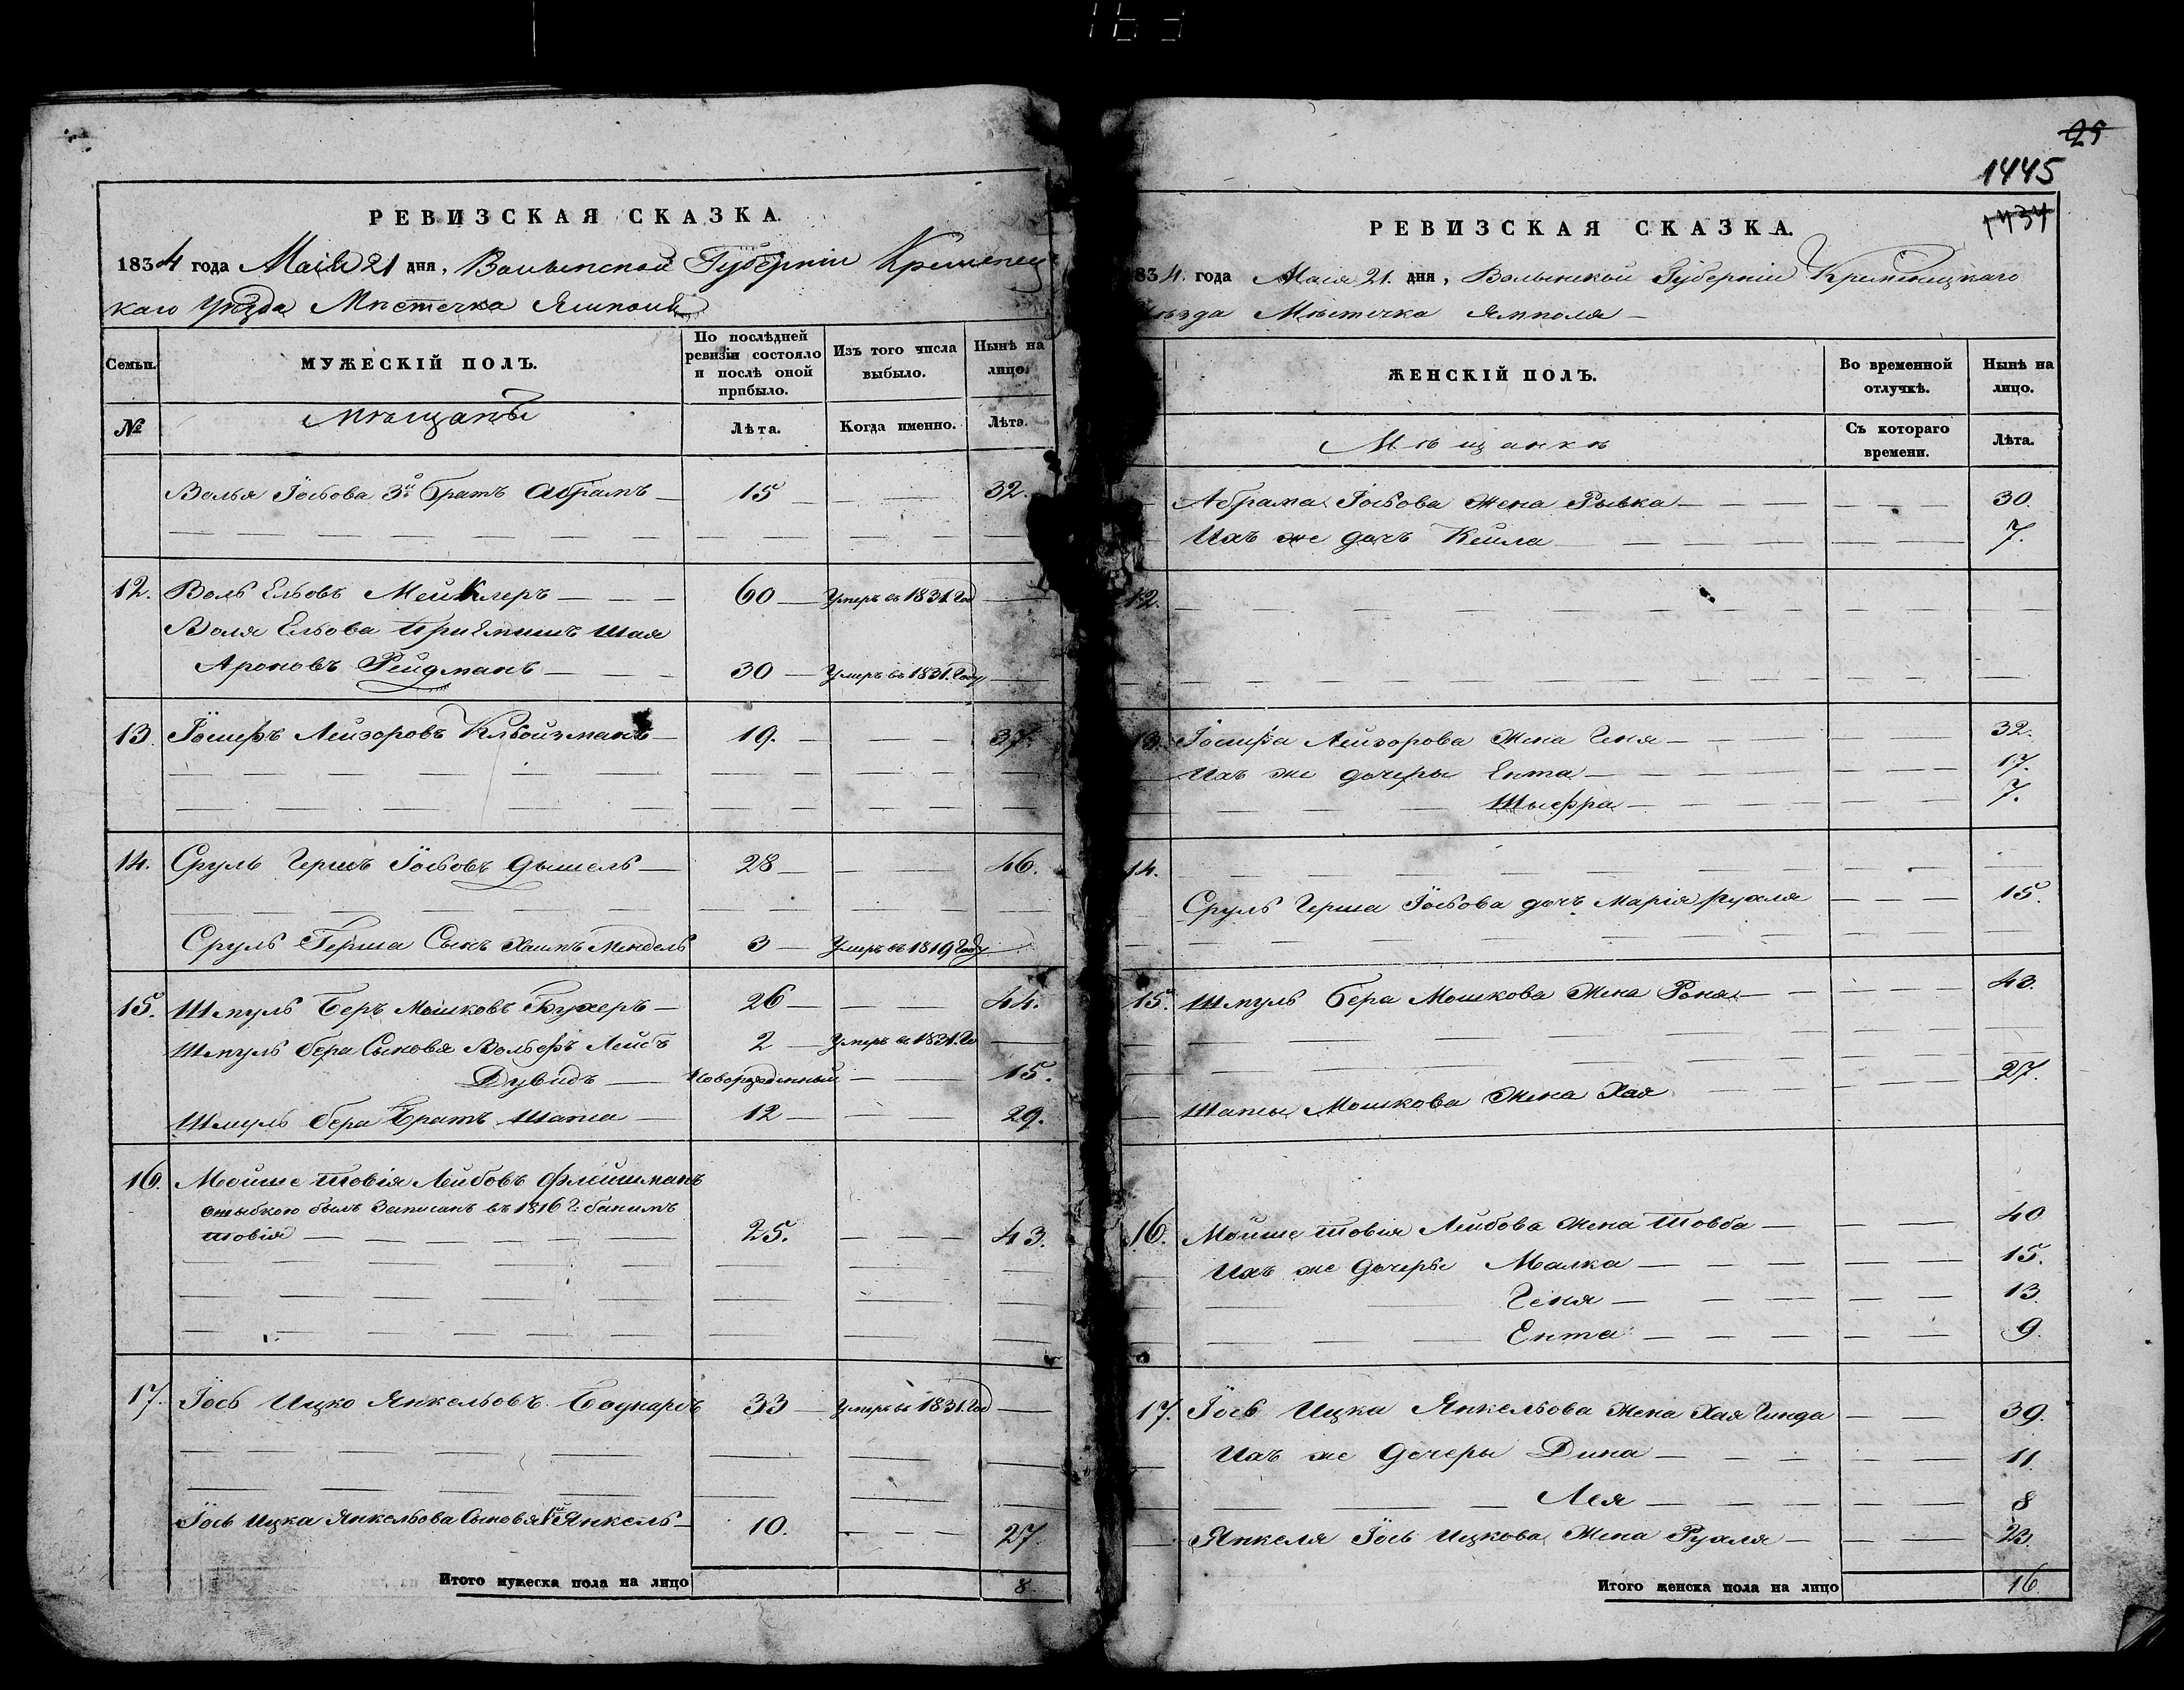 РЕВИЗСКАЯ СКАЗКА.
1834 года Маія 21 дня, Волынской Губерніи Кременец
каго Уѣзда Мѣстечка Ямполя
Семьи.
МУЖЕСКІЙ ПОЛЪ.
По послѣдней ревизіи состояло и послѣ оной прибыло.
Изъ того числа выбыло.
Нынѣ на лицо.
№
Мѣщанѣ
Лѣта.
Когда именно.
Лѣта.
Волья Іосьова 3й братъ Абрамъ 15 32.
12. Воль Ельовъ Мейклеръ 60 Умеръ въ 1831. Год
Воля Ельова Пріемышъ Шая
Ароновъ Рейдманъ 30 Умеръ въ 1831. Году
13. Іосифъ Лейзоровъ Клѣойзманъ 19. 37.
14. Сруль Гершъ Іосьовъ Дышель 28 46.
Сруль Герша Сынъ Хаимъ Мендель 3 Умеръ въ 1819 Году
15. Шмуль Беръ Мошковъ Бухеръ 26 44.
Шмуль бера Сыновья Вольфъ Лейбъ 2 Умеръ въ 1831. Го
Дувидъ Новорожденный 15.
Шмуль бера Братъ Шапса 12 29.
16. Мойше Товія Лейбовъ Флейшманъ
ошыбкою былъ Записанъ въ 1816 Г:
Товія 25. 43.
17. Іось Ицко Янкельовъ Боднаръ 33 Умеръ въ 1831. Год
Іось Ицка Янкельова Сыновья 1й Янкель 10. 27.
Итого мужеска пола на лицо 8.
29
1445
1434
РЕВИЗСКАЯ СКАЗКА.
834. года Маія 21. дня, Волынской Губерніи Кременецкаго
ѣзда Мѣстечка Ямполя
ЖЕНСКІЙ ПОЛЪ.
Во временной отлучкѣ.
Нынѣ на лицо.
Мѣщанкѣ
Съ котораго времени.
Лѣта.
Абрама Іосьова Жена Рывка 30.
Ихъ же дочъ Кейла 7.
12.
13. Іосифа Лейзорова Жена Геня 32.
Ихъ же дочеры Ента 17.
Шыфра 7.
14.
Сруль Герша Іосьова дочъ Маріа Рухля 15.
15. Шмуль бера Мошкова Жена Роня 43.
Шапсы Мошкова Жена Хая 27.
16. Мойше Товія Лейбова жена Товба 40
Ихъ же Дочеры Малка 15.
Геня 13.
Ента 9.
17. Іось Ицка Янкельова жена Хая Гинда 39.
Ихъ же Дочеры Дина 11.
Лея 8
Янкеля Іось Ицкова Жена Рухля 23.
Итого женска пола на лицо 16.